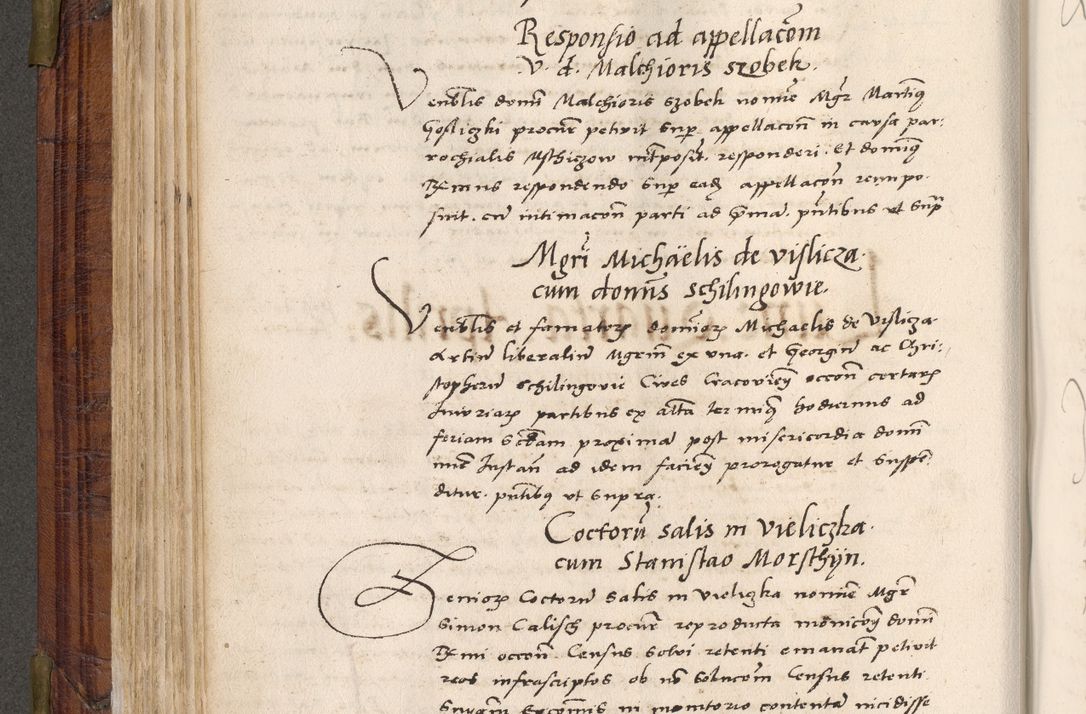 Responsio ad appellacõm
V. d. Malchioris szobek.
Venblis domi Malchioris szobek nomie Mgr Martiq
Gosliczki procur petivit sup appellacon in causa par:
rochialis Usthiczow intposit. responderi. Et domiq
Rmus respondendo sup eadz appellacon rempo
suit. cu intimacon parti ad pma. pntibus ut supr
Mgri Michäelis de vislicza.
cum domis schilingowie.
Venblis et famator domior Michaelis de Vislicza
Artiu liberaliu Mgrm ex una. et Georgiu ac Chri:
stopheru schilingovie Cives Cracovien occon certar
Iniuriar partibus ex alta termiq hodiernus ad
feriam scdam proxima post misericordia domi
nue Instan ad idem facien prorogatur et suspe:
ditur. pntibq ut supra.
Coctoru salis in vieliczka.
cum Stanislao Morsthÿn.
Senior Coctoru salis in vieliczka nomie Mgr
Simon Calisch procur reproducta monicon domi
Rmi occon. Census solvi retenti emanat petivit
reos infrascriptos ob no solucom Census retenti
in monitorio contenta incidisse